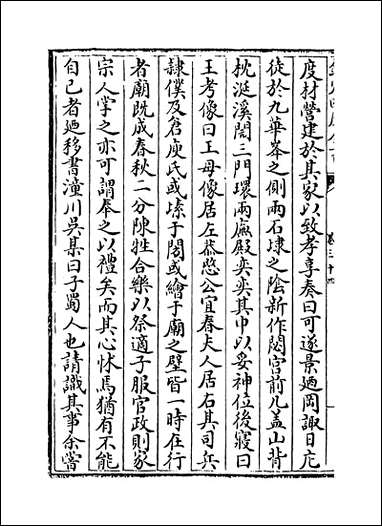 度材營建於其家以致孝享奏曰可遂景廼岡諏日庀
徒於九華峯之側兩石埭之陰新作閟宮前几盖山背
枕涎溪閎三門環兩廡殿奕奕其中以妥神位後寢曰
王考像曰王母像居左恭愍公宜春夫人居右其司兵
隷僕及倉庾氏或塐于閤或繪于廟之壁皆一時在行
者廟既成春秋二分陳牲合樂以祭適子服官政則家
宗人掌之亦可謂奉之以禮矣而其心怵焉猶有不能
自已者廼移書潼川吳某曰子蜀人也請識其事余嘗